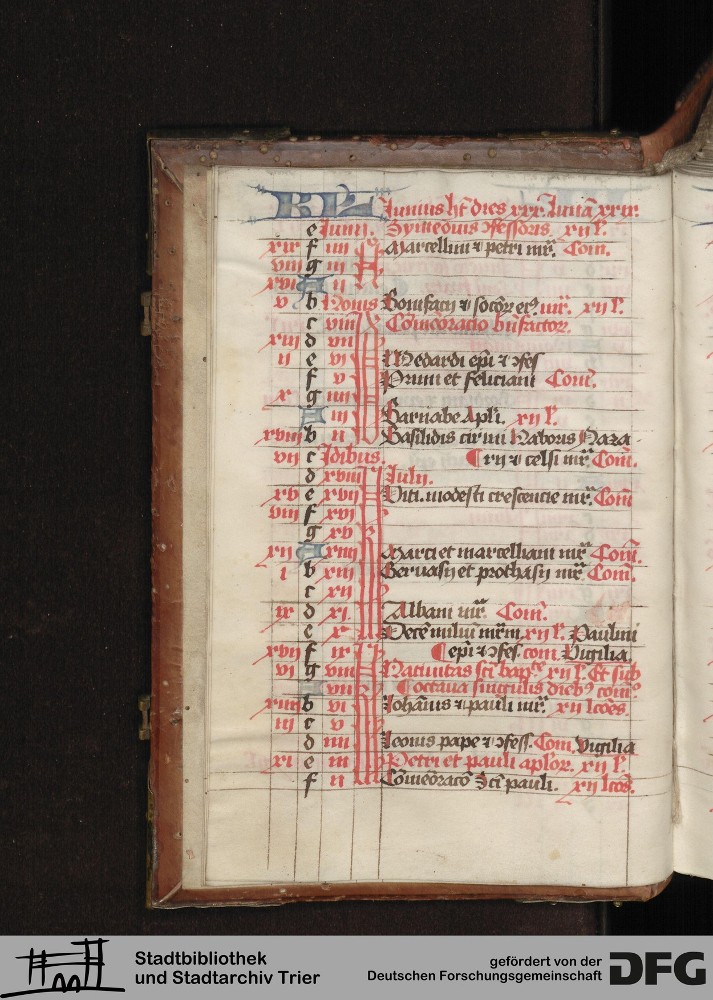 KL Junius hꝫ dies xxx. Luna xxix.
e Junii. Symeonis ꝯfessoris. xii l'.
xix f iiii N Marcellini ⁊ petri mr̄. Com̄.
viii g iii
xvi A ii
v b Nonis Bonifacii ⁊ socioꝝ eiꝰ mr̄. xii l'.
c viii Id Com̄emoracio bn̄factoꝝ.
xiii d vii
ii e vi Medardi ep̄i ⁊ ꝯfes
f v Primi et feliciani Com̄.
x g iiii
A iii Barnabe Apl̄i. xii l'.
xviii b ii Basilidis cirini Naboris Naza
vii c Idibus. rii ⁊ celsi mr̄ Com̄.
d xviii Julii.
xv e xvii Viti. modesti crescencie mr̄. Com̄
viii f xvi
g xv
xii A xiiii Marci et marcelliani mr̄ Com̄.
i b xiii Gervasii et prothasii mr̄ Com̄.
c xii
ix d xi. Albani mr̄. Com̄.
e x Decē miliū mr̄m xii l'. Paulini
xvii f ix ep̄i ⁊ ꝯfes. com̄. Vigilia
vi g viii Nativitas sc̄i bapt̄e xii l'. Et sub
A vii octava singulis diebꝰ com̄o
xiiii b vi Joh̄is ⁊ pauli mr̄. xii lc̄oēs.
iii c v
d iiii Leonis pape ⁊ ꝯfess. Com̄. Vigilia
xi e iii Petri et pauli apl̄oꝝ. xii l'.
f ii Com̄emorac̄o Sc̄i pauli. xii lc̄oēs.
Stadtbibliothek
und Stadtarchiv Trier
gefördert von der
Deutschen Forschungsgemeinschaft DFG